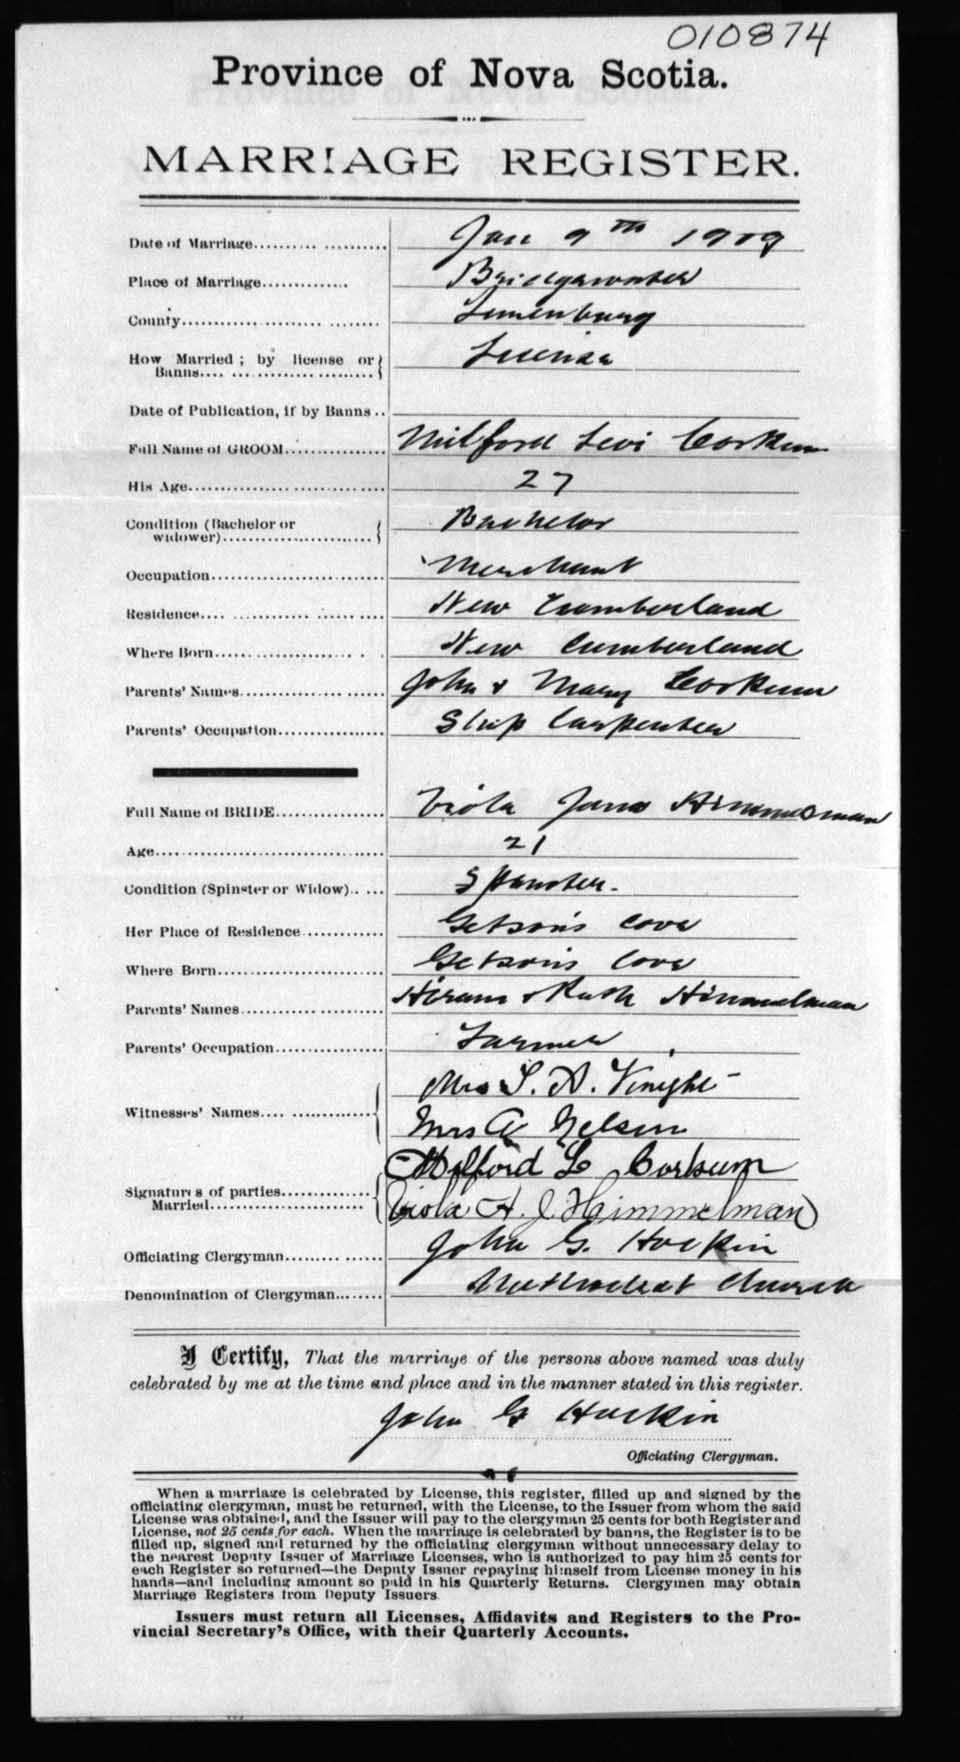 010874
Province of Nova Scotia.
MARRIAGE REGISTER.
Date of Marriage.......... Jan 9th 1909
Place of Marriage.......... Bridgewater
County.......... Lunenburg
How Married ; by license or Banns.......... License
Date of Publication, if by Banns ..
Full Name of GROOM.......... Milford Levi Corkum
His Age.......... 27
Condition (Bachelor or widower).......... Bachelor
Occupation.......... Merchant
Residence.......... New Cumberland
Where Born.......... New Cumberland
Parents' Names.......... John & Mary Corkum
Parents' Occupation.......... Ship Carpenter
Full Name of BRIDE.......... Viola Jane Himmelman
Age.......... 21
Condition (Spinster or Widow).. ... Spinster.
Her Place of Residence.......... Getson's Cove
Where Born.......... Getson's Cove
Parents' Names.......... Hiram & Ruth Himmelman
Parents' Occupation.......... Farmer
Witnesses' Names.......... Mrs
Mrs A Nelson
Signatures of parties Married.......... Milford L Corkum
Viola H. J. Himmelman
Officiating Clergyman.......... John G. Hockin
Denomination of Clergyman........ Methodist Church
I Certify, That the marriage of the persons above named was duly
celebrated by me at the time and place and in the manner stated in this register.
John G Hockin
Officiating Clergyman.
When a marriage is celebrated by License, this register, filled up and signed by the
officiating clergyman, must be returned, with the License, to the Issuer from whom the said
License was obtained, and the Issuer will pay to the clergyman 25 cents for both Register and
License, not 25 cents for each. When the marriage is celebrated by banns, the Register is to be
filled up, signed and returned by the officiating clergyman without unnecessary delay to
the nearest Deputy Issuer of Marriage Licenses, who is authorized to pay him 25 cents for
each Register so returned—the Deputy Issuer repaying himself from License money in his
hands—and including amount so paid in his Quarterly Returns. Clergymen may obtain
Marriage Registers from Deputy Issuers
Issuers must return all Licenses, Affidavits and Registers to the Pro-
vincial Secretary's Office, with their Quarterly Accounts.